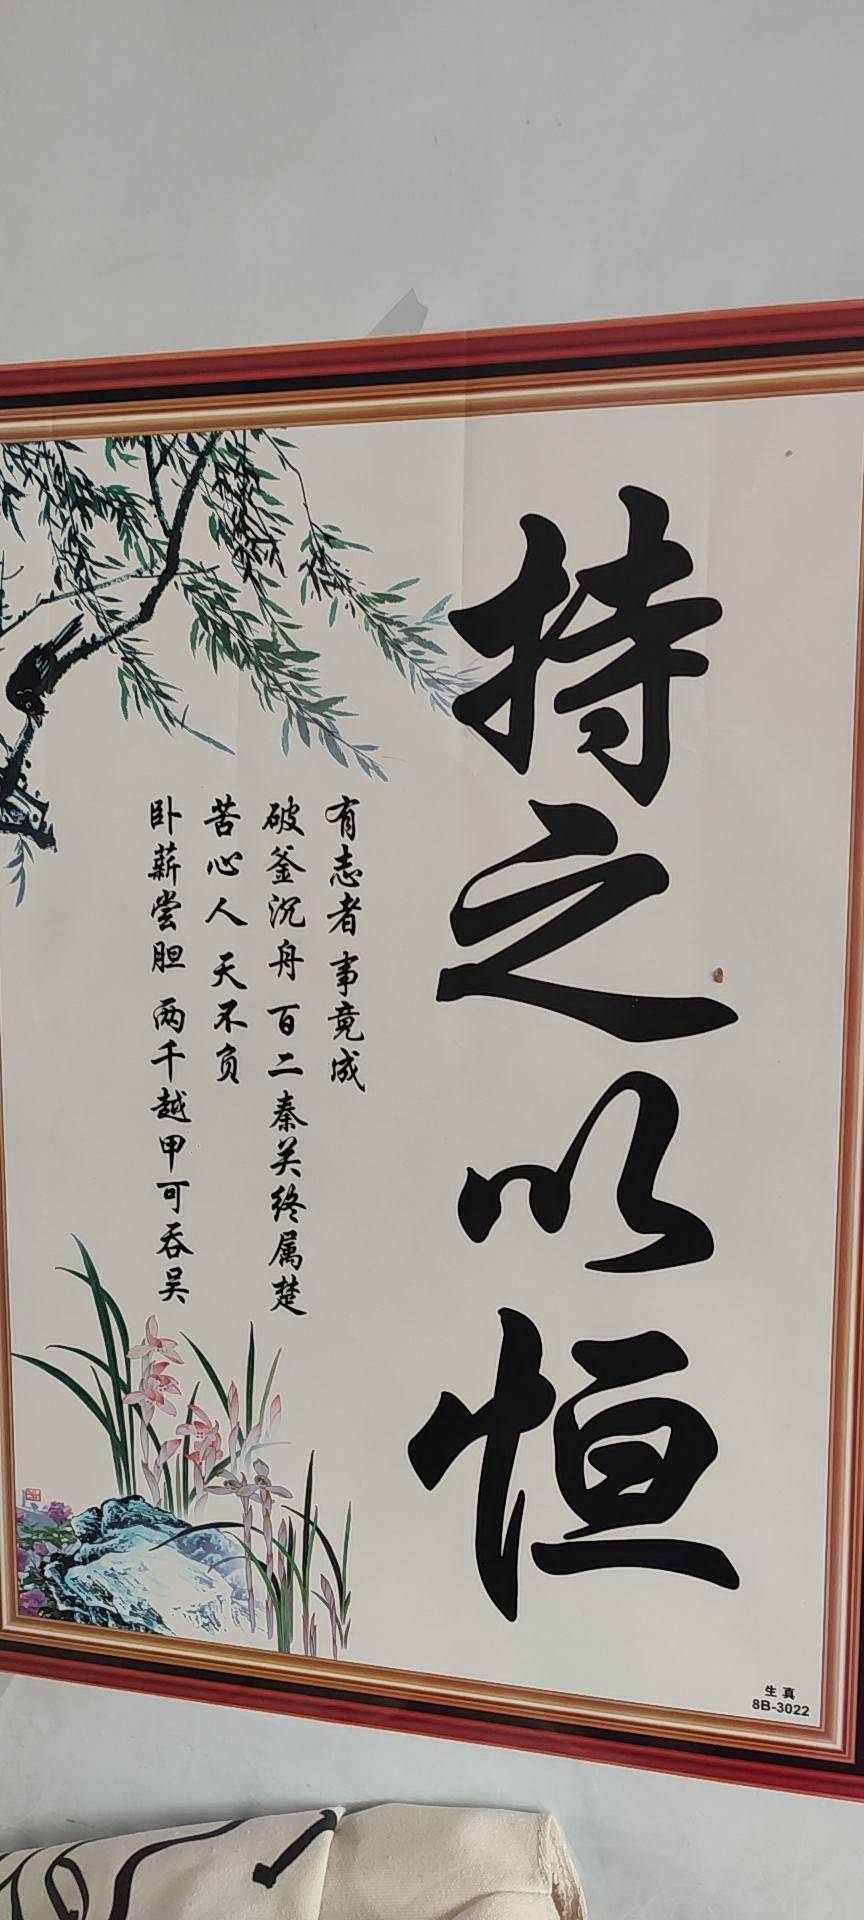 持之以恒
有志者 事竟成
破釜沉舟 百二秦关终属楚
苦心人 天不负
卧薪尝胆 两千越甲可吞吴
生真
8B-3022